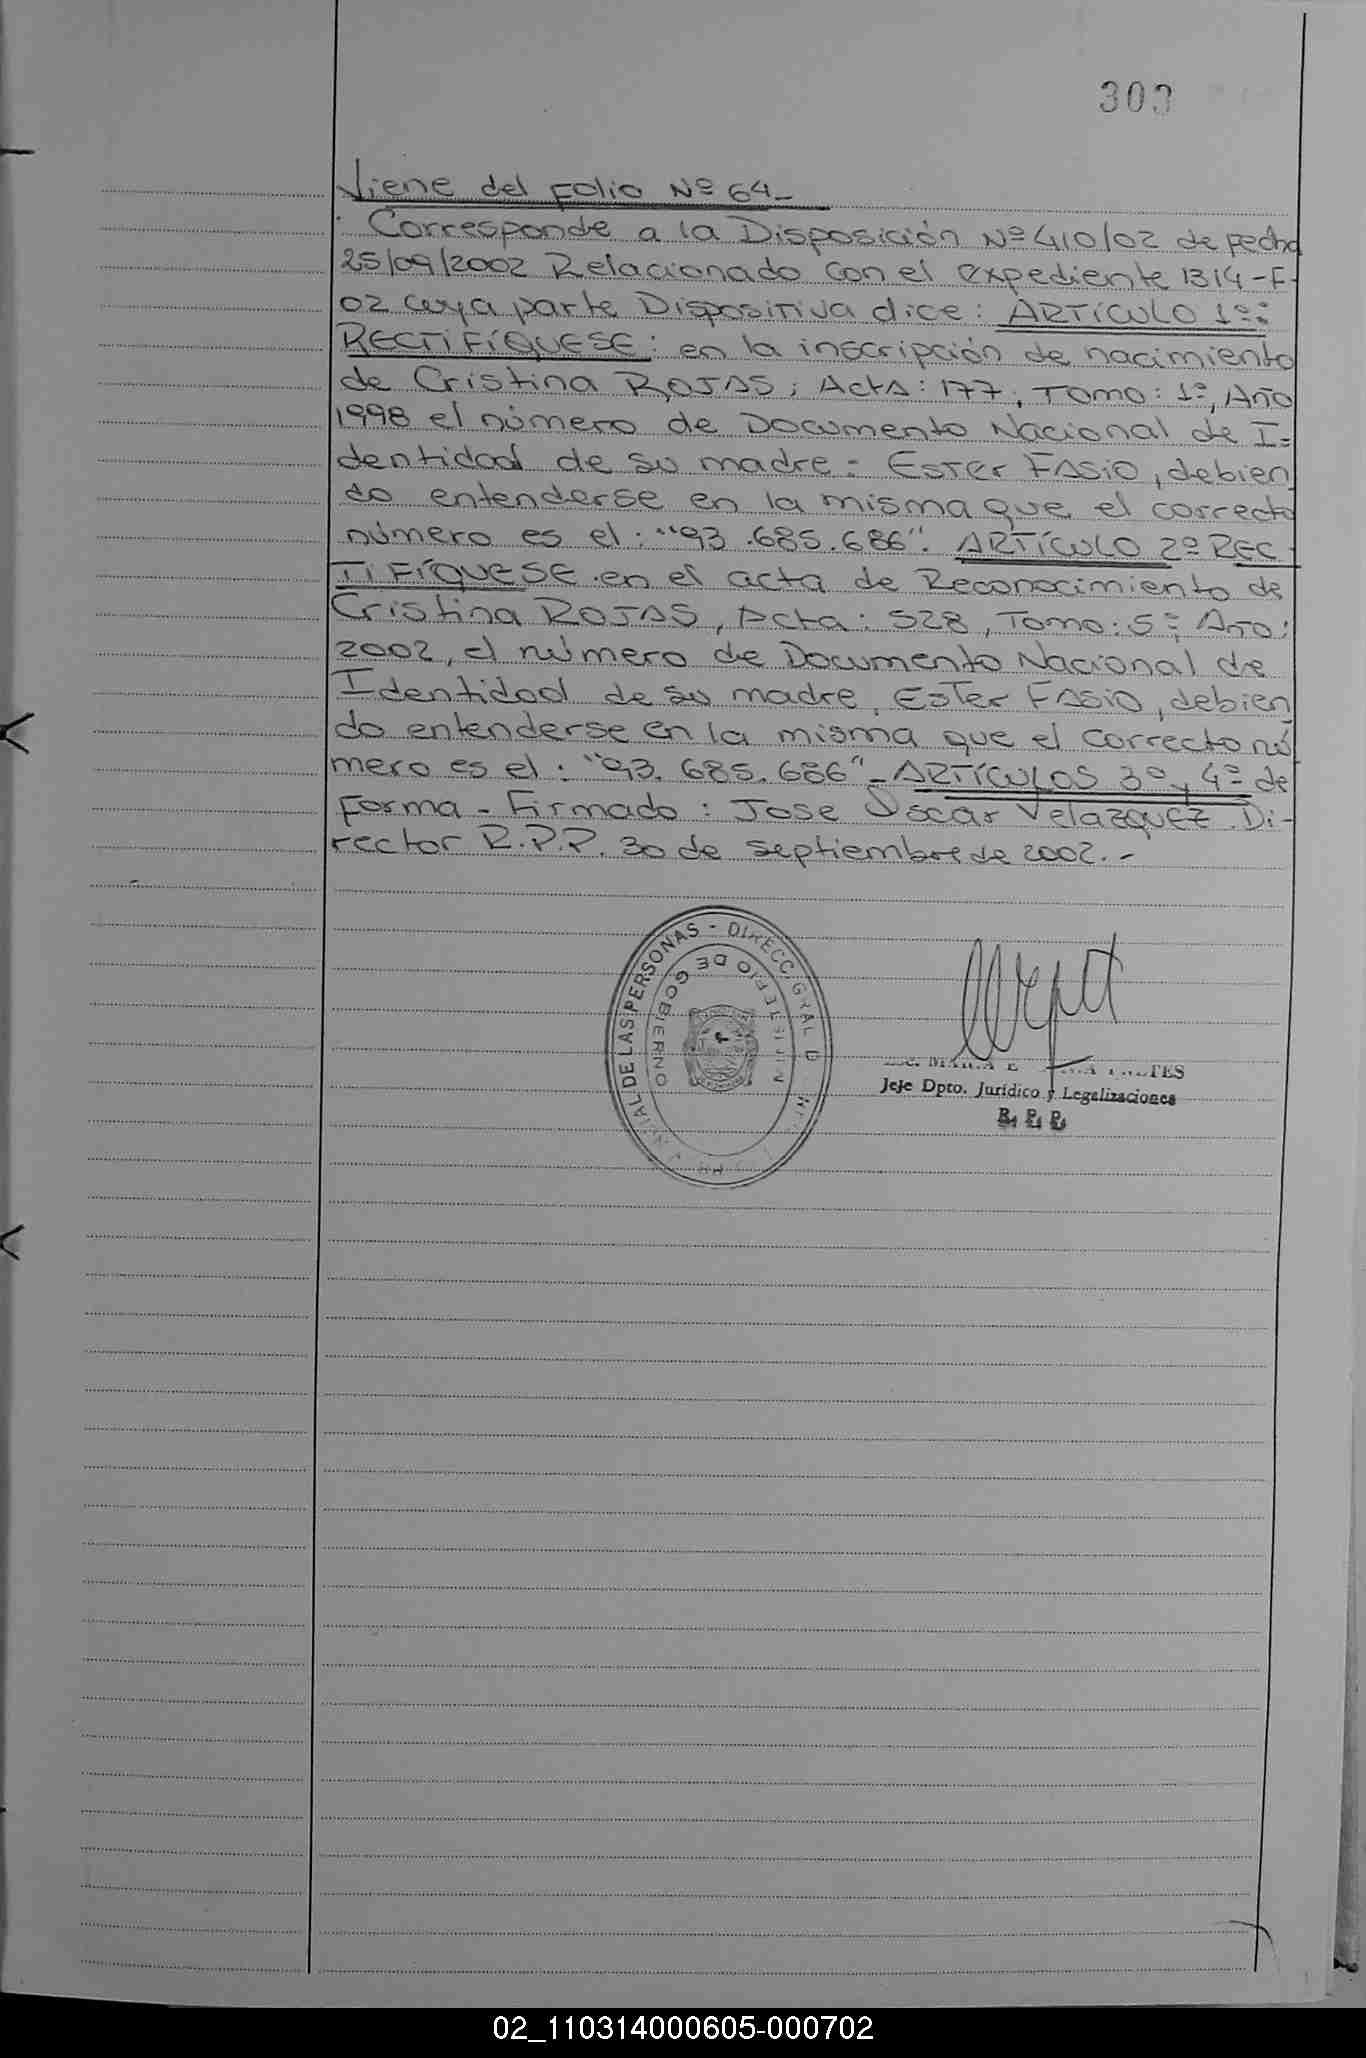 303
Viene del Folio Nº 64_
Corresponde a la Disposición Nº 410/02 de fecha
25/09/2002 Relacionado con el expediente 1314-F-
02 cuya parte Dispositiva dice: ARTÍCULO 1º:
RECTIFÍQUESE: en la inscripción de nacimiento
de Cristina ROJAS, Acta: 177, Tomo: 1º, Año
1998 el número de Documento Nacional de I-
dentidad de su madre: Ester FASIO, debien
do entenderse en la misma que el correcto
número es el: "93.685.686". ARTÍCULO 2º REC-
TIFÍQUESE en el acta de Reconocimiento de
Cristina ROJAS, Acta: 528, Tomo: 5º, Año:
2002, el número de Documento Nacional de
Identidad de su madre, Ester FASIO, debien
do entenderse en la misma que el correcto nú
mero es el: "93.685.686"_ ARTÍCULOS 3º y 4º de
Forma - Firmado: Jose Oscar Velazquez Di-
rector R.P.P. 30 de septiembre de 2002.-
DE LAS PERSONAS - DIRECC. GRAL. D
DE GOBIERNO
MARIA E
Jefe Dpto. Jurídico y Legalizaciones
R. P. P.
02_110314000605-000702